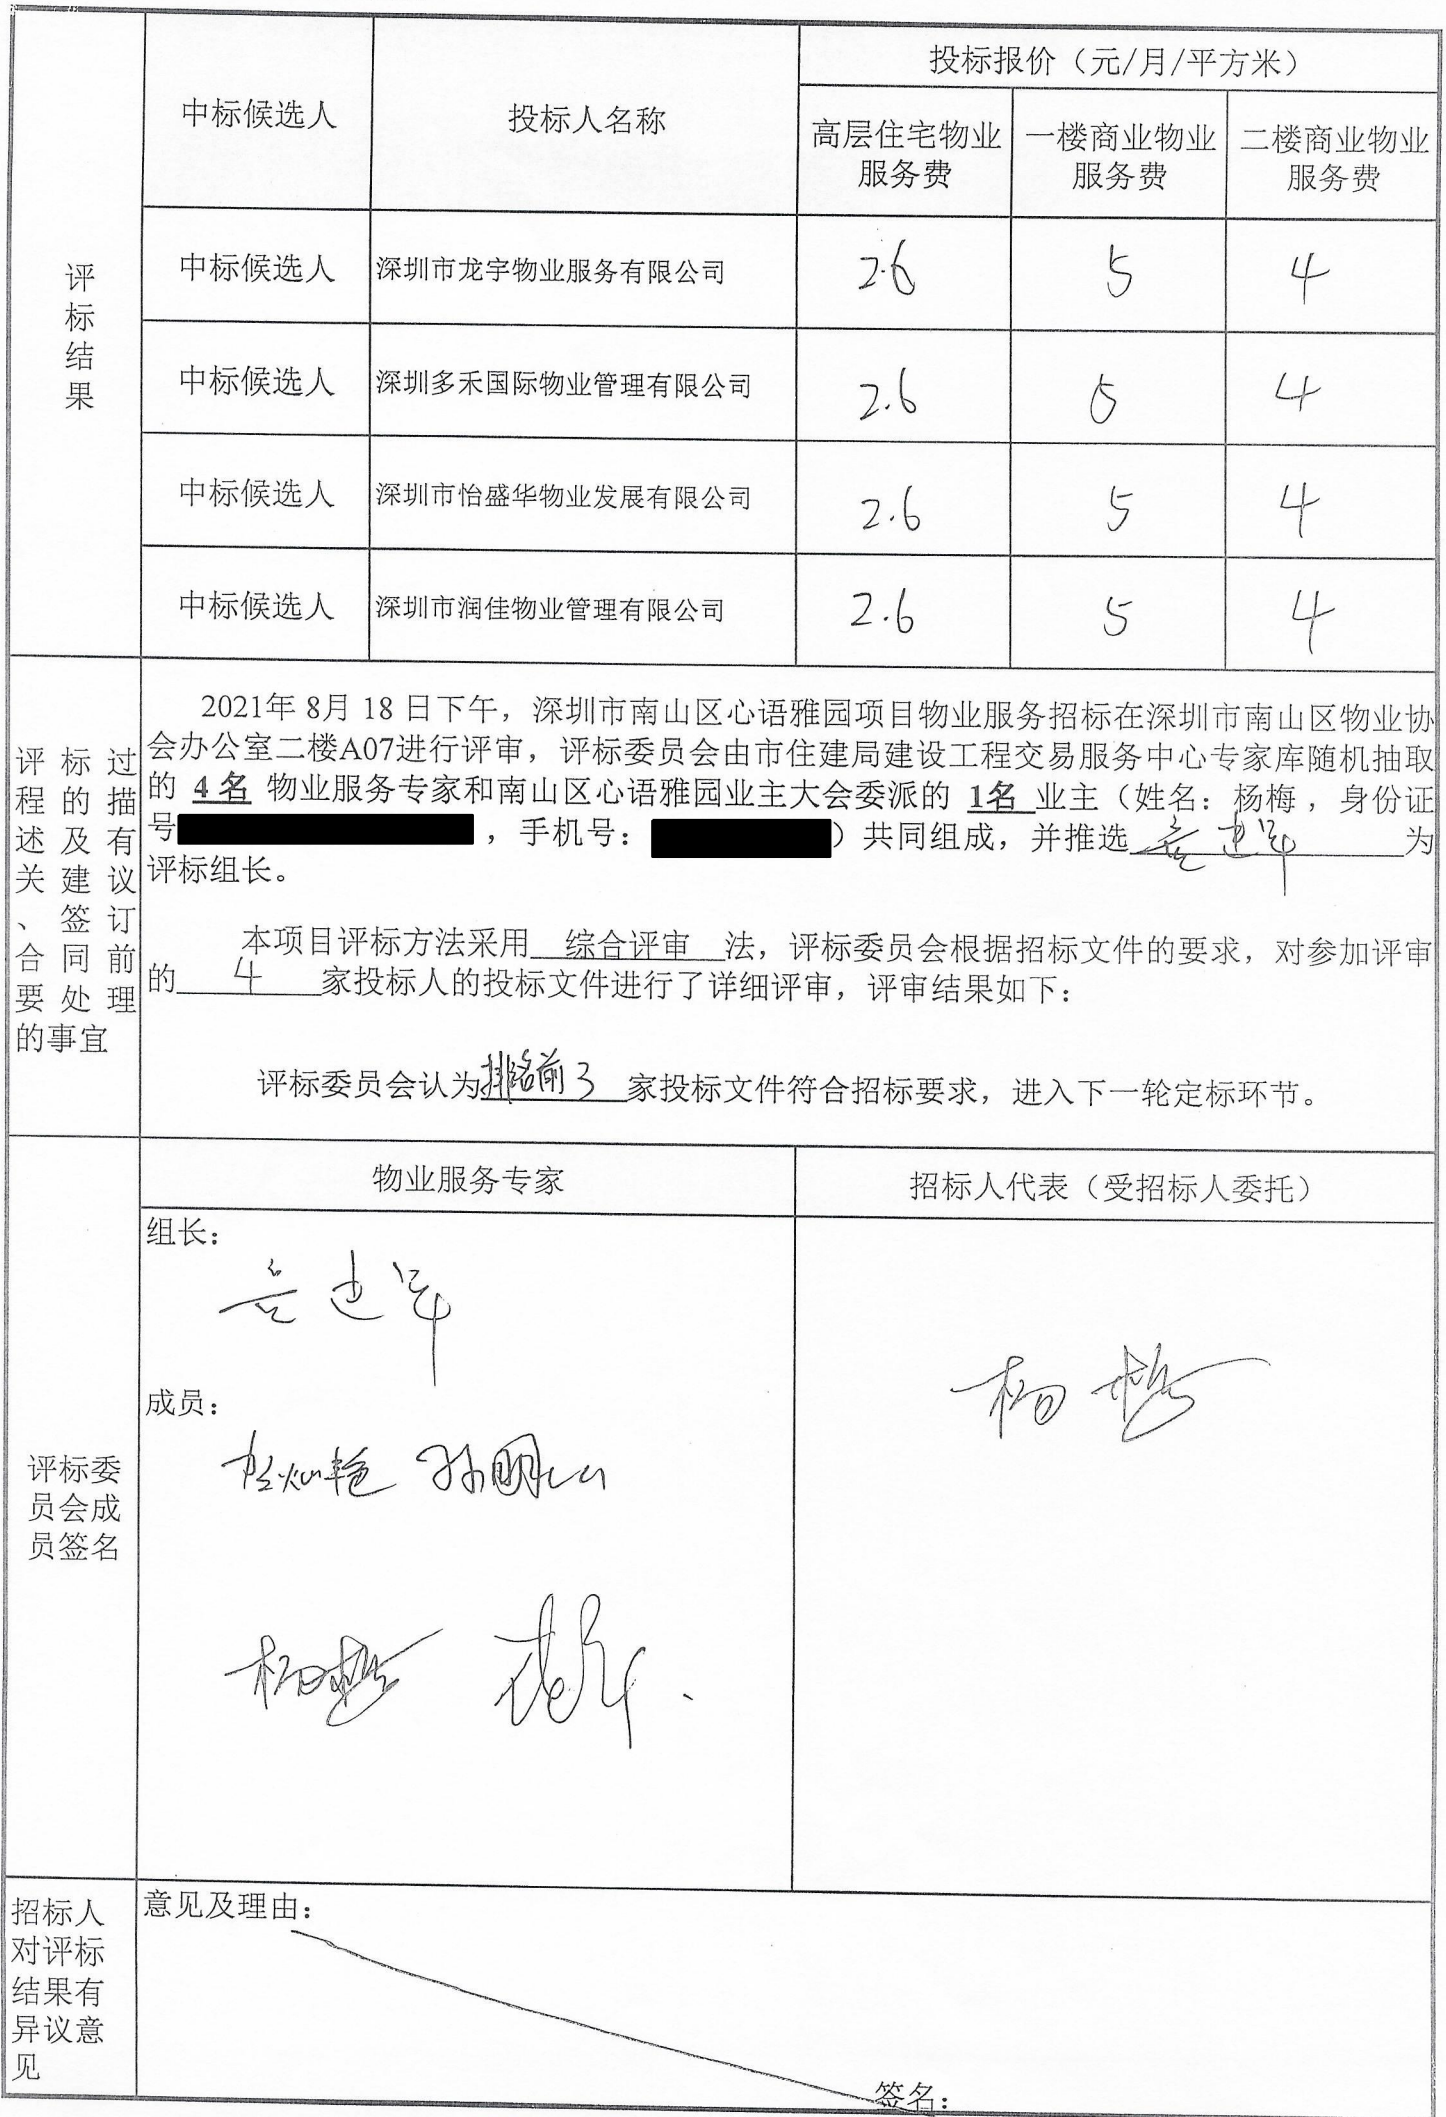 投标报价（元/月/平方米）
中标候选人 投标人名称
高层住宅物业服务费 一楼商业物业服务费 二楼商业物业服务费
评标结果
中标候选人 深圳市龙宇物业服务有限公司 2.6 5 4
中标候选人 深圳多禾国际物业管理有限公司 2.6 5 4
中标候选人 深圳市怡盛华物业发展有限公司 2.6 5 4
中标候选人 深圳市润佳物业管理有限公司 2.6 5 4
评标过
程的描
述及有
关建议
、签订
合同前
要处理
的事宜
2021年 8月 18 日下午，深圳市南山区心语雅园项目物业服务招标在深圳市南山区物业协
会办公室二楼A07进行评审，评标委员会由市住建局建设工程交易服务中心专家库随机抽取
的 4名 物业服务专家和南山区心语雅园业主大会委派的 1名 业主（姓名：杨梅，身份证
号 ，手机号： ）共同组成，并推选 为
评标组长。
本项目评标方法采用 综合评审 法，评标委员会根据招标文件的要求，对参加评审
的 4 家投标人的投标文件进行了详细评审，评审结果如下：
评标委员会认为排名前3 家投标文件符合招标要求，进入下一轮定标环节。
物业服务专家 招标人代表（受招标人委托）
评标委
员会成
员签名
组长：
成员：
孙明山
杨梅
招标人
对评标
结果有
异议意
见
意见及理由：
签名：